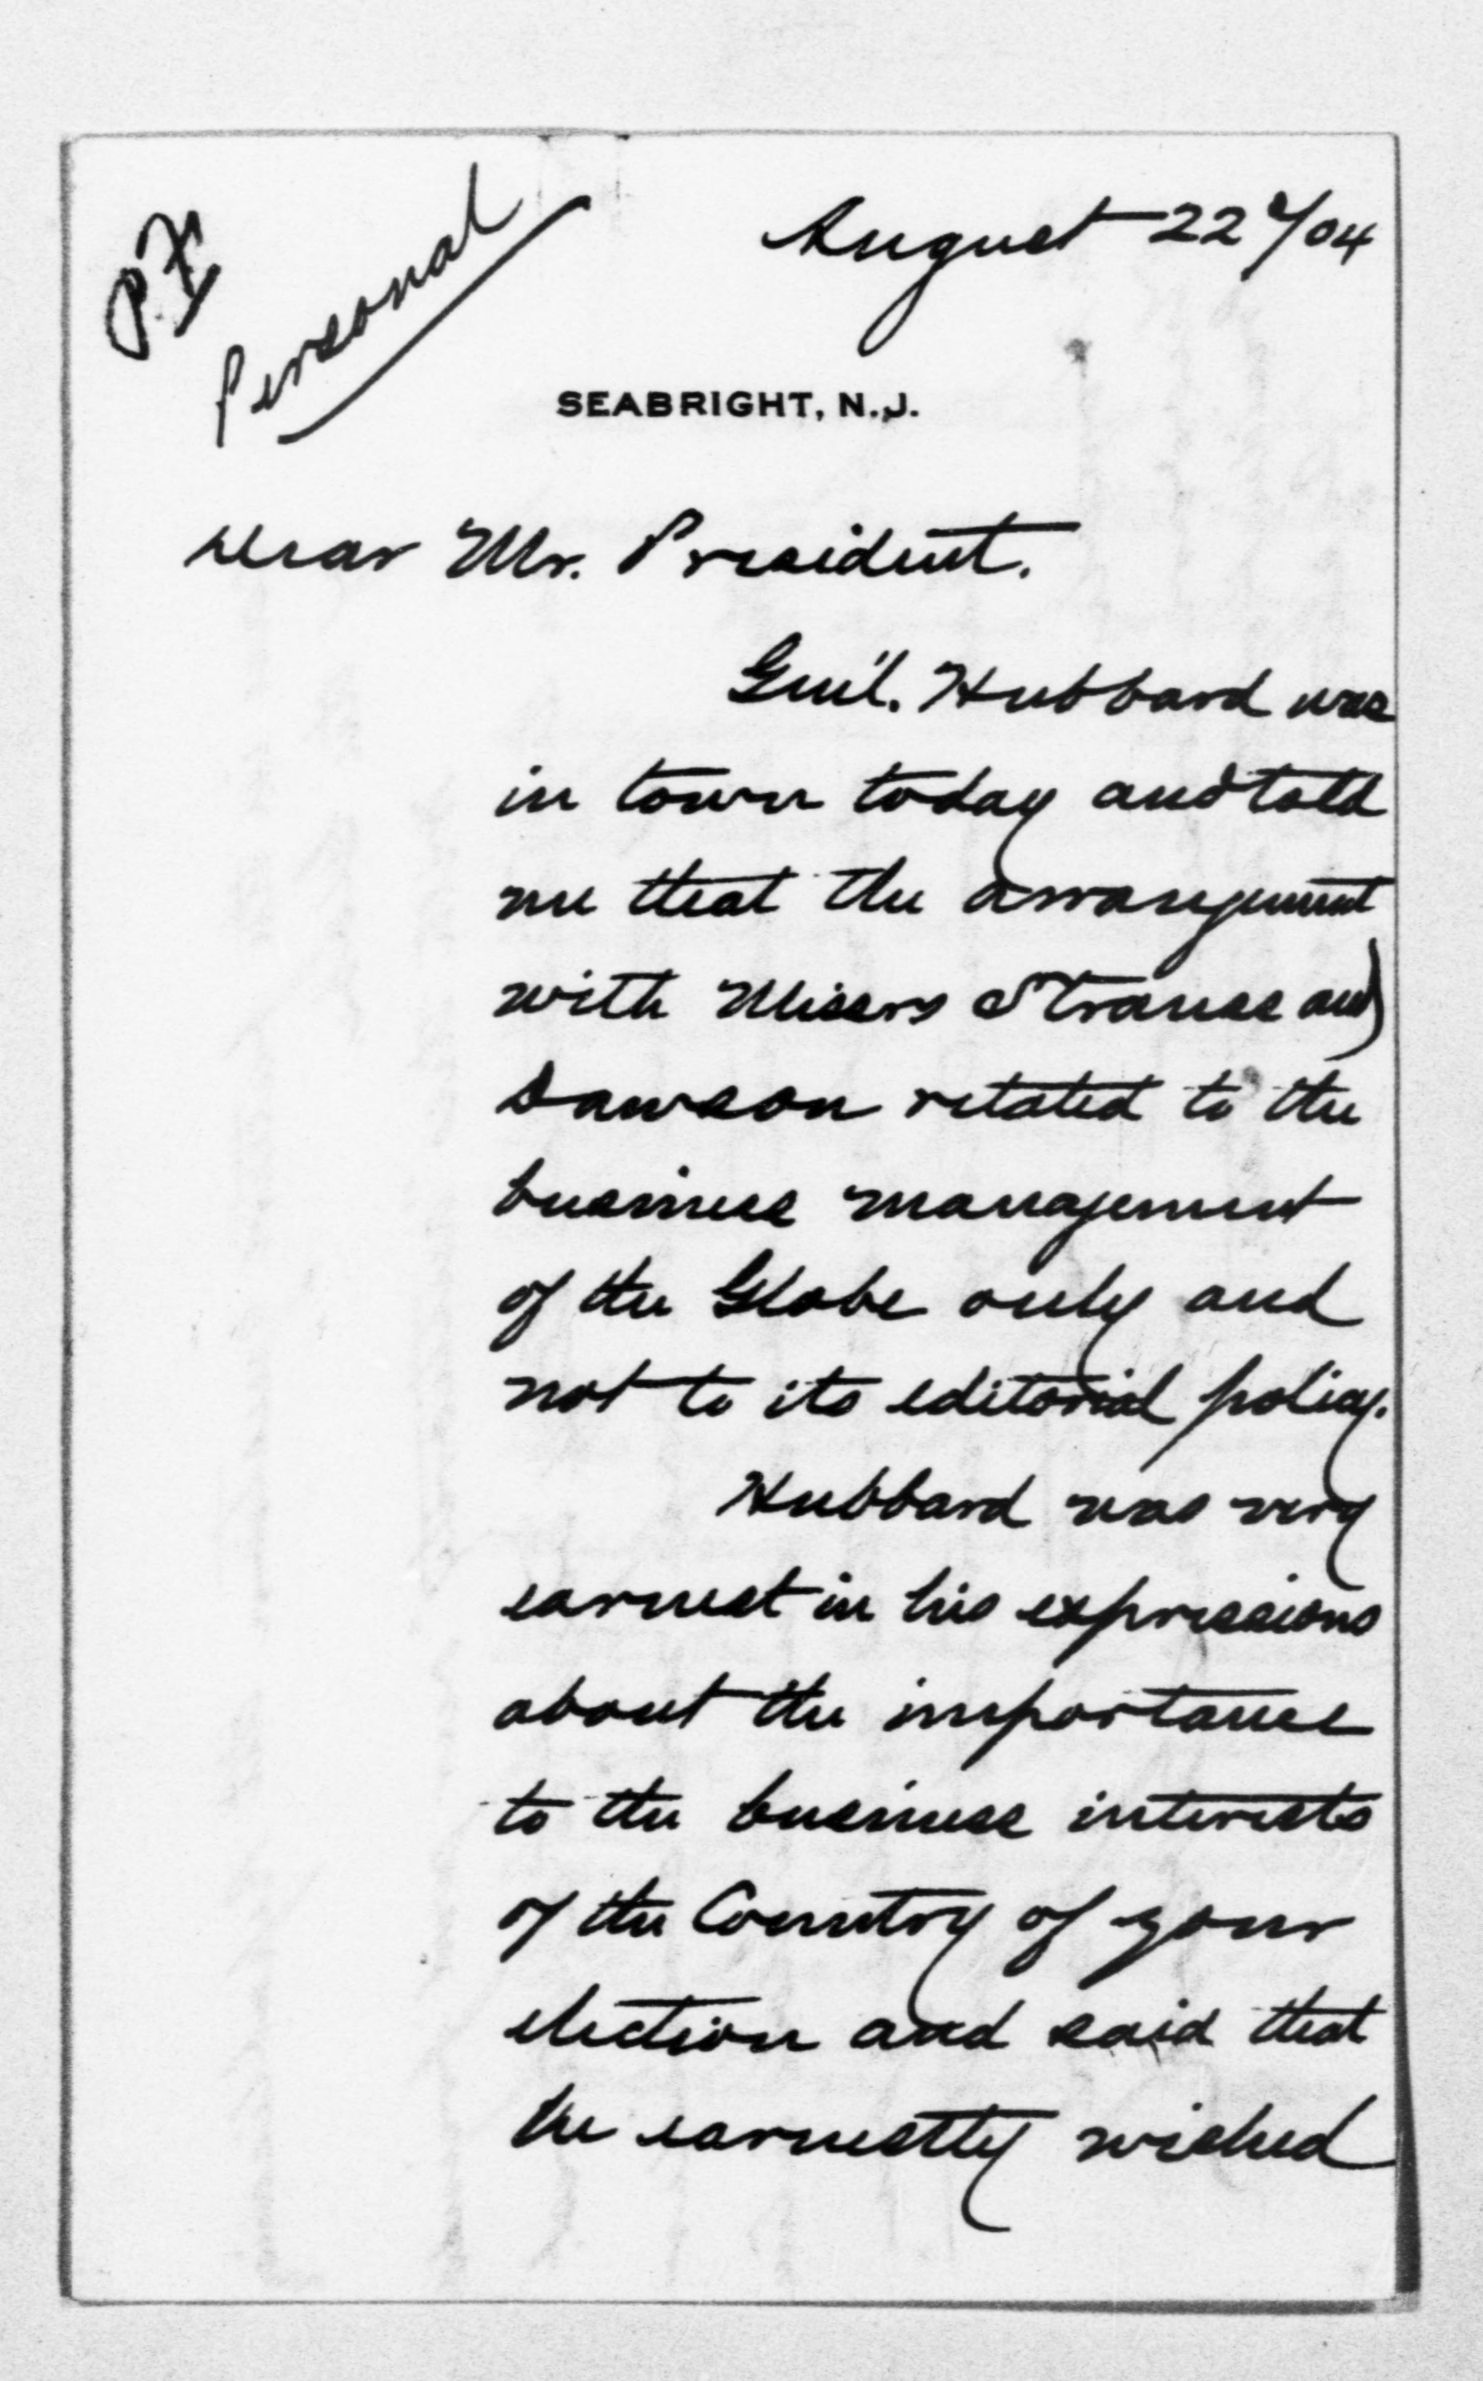 P.F
Personal
August 22d/04
SEABRIGHT, N.J.
Dear Mr. President.
Gen'l. Hubbard was
in town today and told
me that the arrangement
with Messrs Strauss and
Dawson related to the
business management
of the Globe only and
not to its editorial policy.
Hubbard was very
earnest in his expressions
about the importance
to the business interests
of the Country of your
election and said that
he earnestly wished